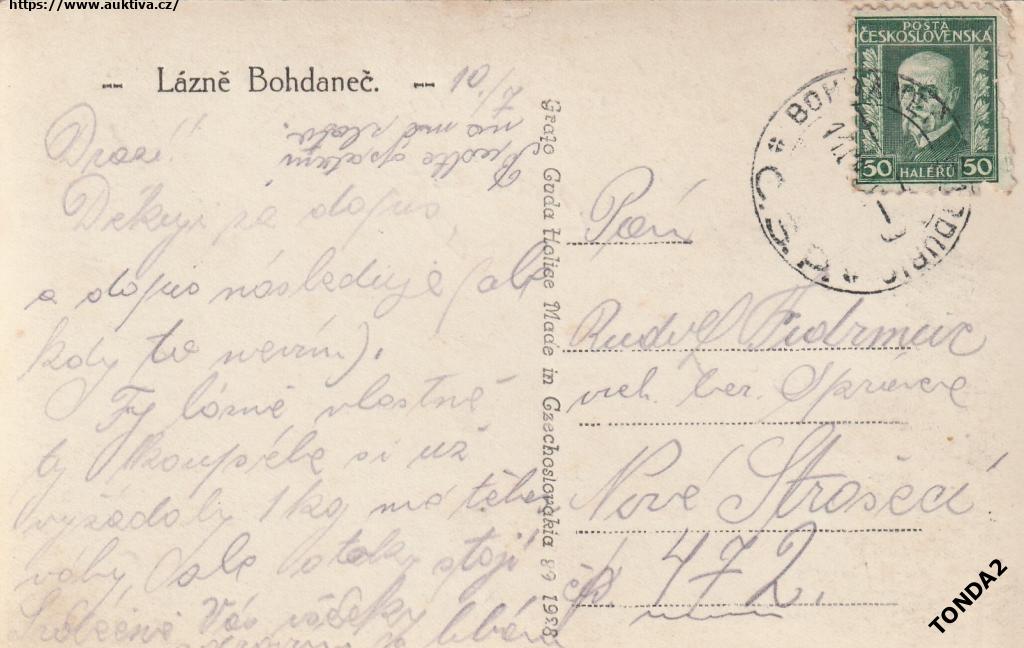 https://www.auktiva.cz/
-- Lázně Bohdaneč. --
10./7
Drazí!
na mé zlato.
Děkuji za dopis
a dopis následuje (ale
kdy to nevím).
Ty lázně vlastně
ty koupele si už
vyžádaly 1 kg mé těles
váhy, ale
stojí
Srdečně Vás všecky
líbám
Grafo Čuda Holice Made in Czechoslovakia 89 1928
POŠTA
ČESKOSLOVENSKÁ
50 HALÉŘŮ 50
Č.S.P.
Pan
Rudolf Fidrmuc
vrch. ber. správce
Nové Strašecí
čp. 472.
TONDA2